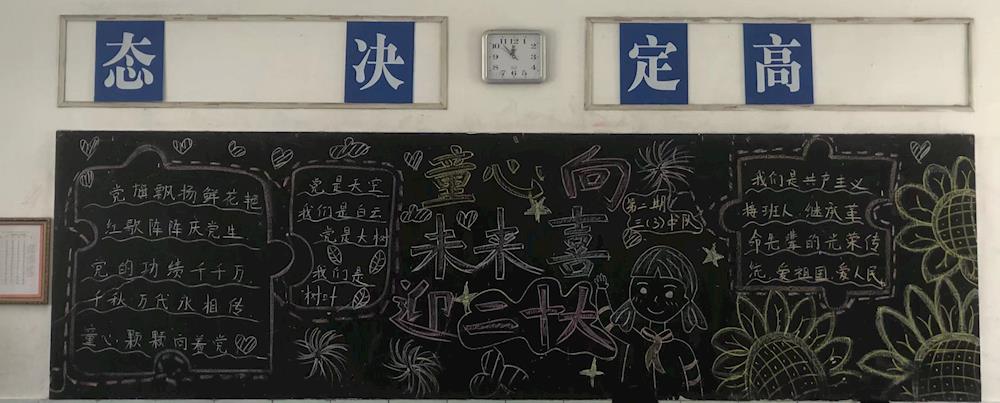 态 决 定 高
党旗飘扬鲜花艳
红歌阵阵庆党生
党的功绩千千万
千秋万代永相传
童心颗颗向着党
党是天空
我们是白云
党是大树
我们是
树叶
童心向
未来喜
迎二十大
第二期
三(3)中队
我们是共产主义
接班人 继承革
命先辈的光荣传
统 爱祖国 爱人民